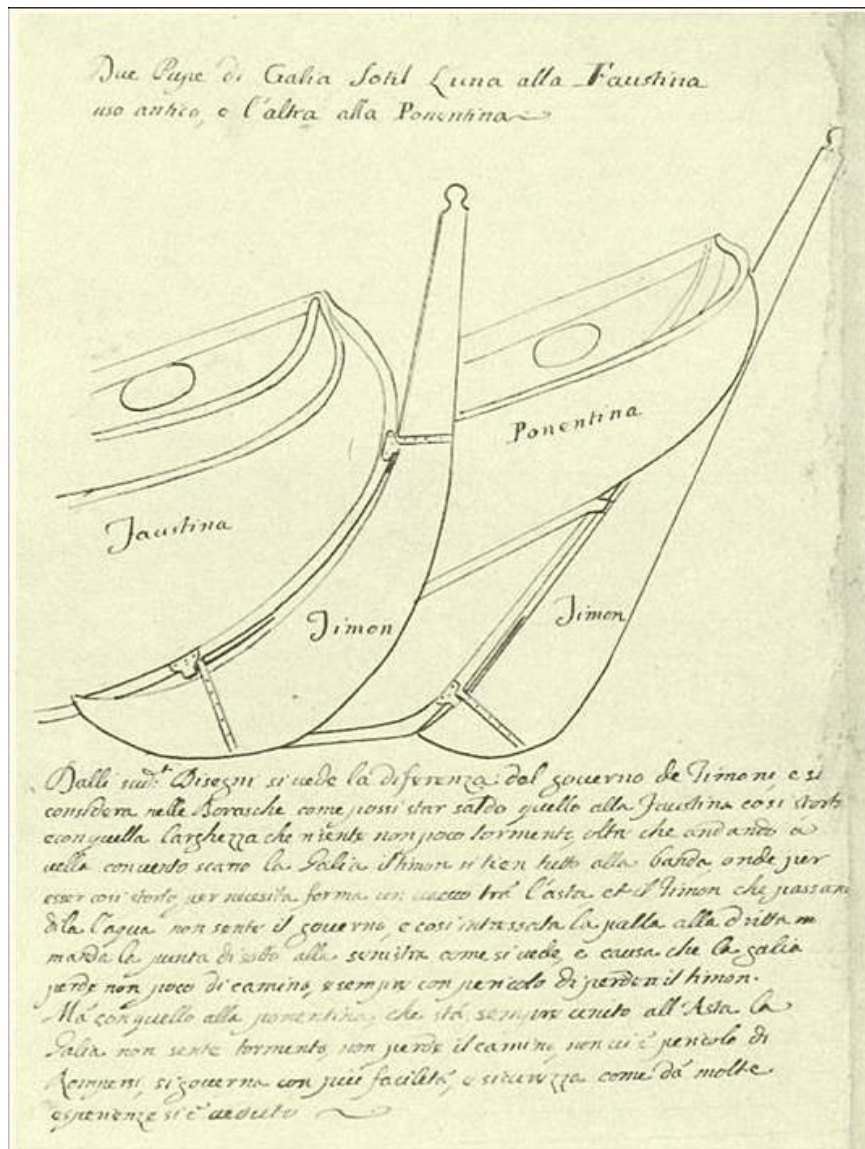 Due Pupe di Galia Sotil L'una alla Faustina
uso antico, e l'altra alla Ponentina
Ponentina
Faustina
Timon
Timon
Dalli sud.ti Disegni si vede la diferenza del governo de Timoni, e si
considera nelle Borasche come possi star saldo quello alla Faustina cosi storto
e con quella larghezza che non poco tormento, oltra che andando a
vella con vento scarso la Galia il timon si tien tutto alla banda, onde per
esser cosi storto, per necesita forma un vacuo trà l'asta et il Timon che passando
di la l'aqua non sente il governo, e cosi la palla alla dritta
manda la punta di sotto alla senistra come si vede, e causa che la galia
perde non poco di camino, e sempre con pericolo di perder il timon.
Mà con quello alla ponentina, che stà sempre unito all'Asta la
Galia non sente tormento, non perde il camino, non vi è pericolo di
Rompersi, si governa con più facilità, e sicurezza come dà molte
esperienze si è veduto